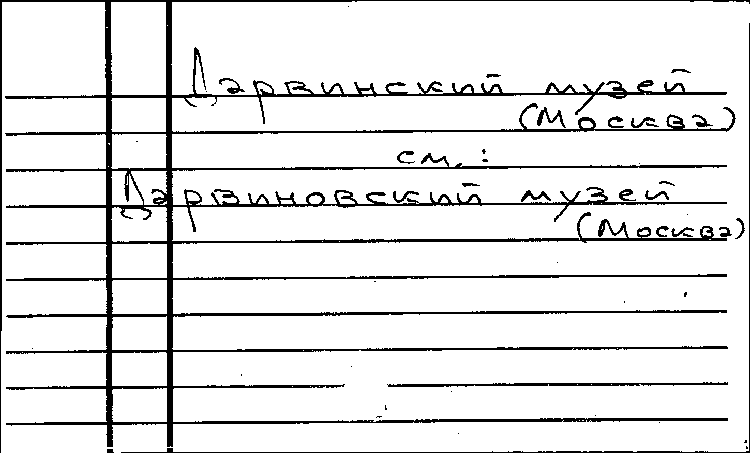 Дарвинский музей
(Москва)
см. :
Дарвиновский музей
(Москва)